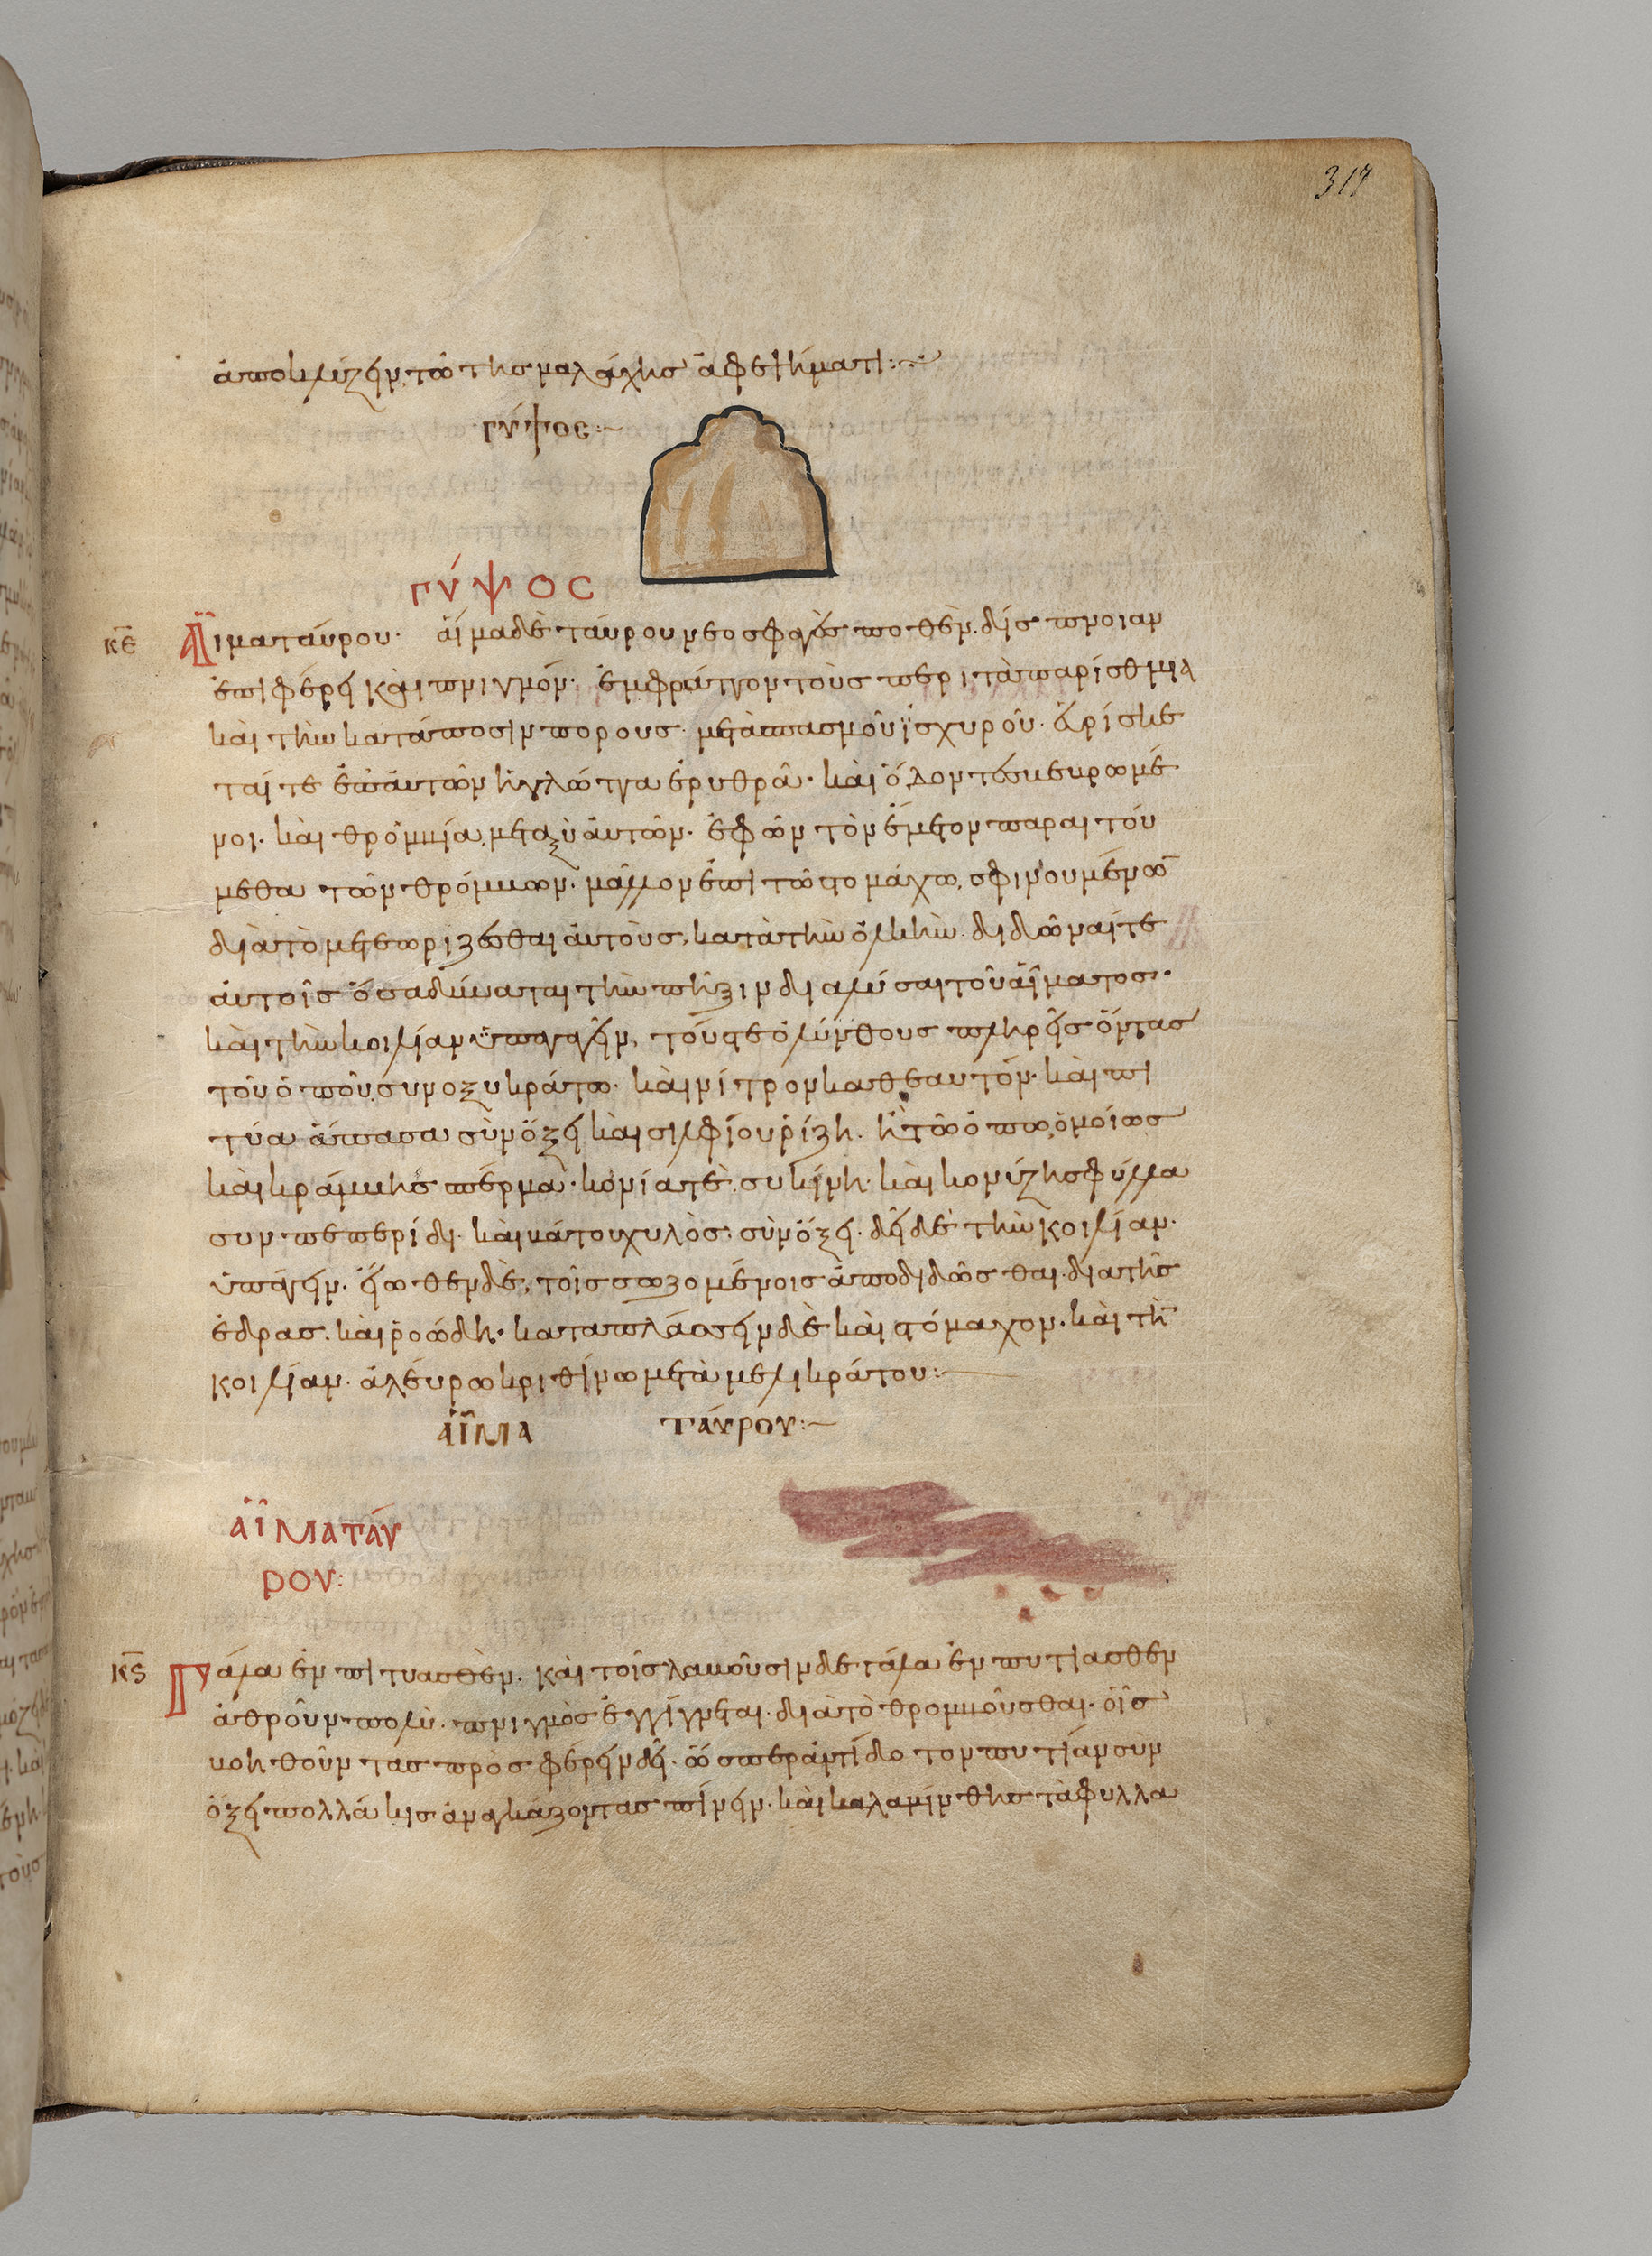 317
ἀποκλύζειν τῶ τῆς μαλάχης ἀφεψήματι:~
γύψος:~
ΓΎΨΟC
κε Αἷμα ταύρου· αἷμα δὲ ταύρου νεοσφαγὲς ποθὲν. δύσπνοιαν
ἐπιφέρει καὶ πνιγμόν· ἐμφράττον τοὺς περὶ τὰ παρίσθμια
καὶ τὴν κατάποσιν πόρους· μετὰ σπασμοῦ ἰσχυροῦ· εὑρίσκε
ταί τε ἐπ' αὐτῶν ἡ γλῶττα ἐρυθρὰ· καὶ ὀδόντες κεχρωσμέ
νοι· καὶ θρόμβια μεταξὺ αὐτῶν· ἐφ' ὧν τὸν ἔμετον παραιτού
μεθα τῶν θρόμβων· μᾶλλον ἐπὶ τῶ στομάχω, σφηνουμένων
διὰ τὸ μετεωρίζεσθαι αὐτοὺς, κατὰ τὴν ὁλκὴν· διδόναι τε
αὐτοῖς ὅσα δύναται τὴν πῆξιν διαλῦσαι τοῦ αἵματος·
καὶ τὴν κοιλίαν ὑπαγαγεῖν, τούς τε ὀλύνθους πλήρεις ὄντας
τοῦ ὀποῦ σὺν ὀξυκράτω· καὶ νίτρον καθ' ἑαυτόν· καὶ πι
τύα ἅπασα σὺν ὄξει καὶ σιλφίου ῥίζη· ἢ τῶ ὀπῶ ὁμοίως
καὶ κράμβης σπέρμα· κονία τε συκίνη· καὶ κονύζης φύλλα
σὺν πεπέριδι· καὶ βάτου χυλὸς· σὺν ὄξει· δεῖ δὲ τὴν κοιλίαν·
ὑπάγειν· εἴωθεν δὲ, τοῖς σωζομένοις ἀποδίδοσθαι διὰ τῆς
ἕδρας· καὶ ῥοώδη· καταπλάσσειν δὲ καὶ στόμαχον· καὶ τὴν
κοιλίαν· ἀλεύρω κριθίνω μετὰ μελικράτου:
ΑἷΜΑ ΤΑΎΡΟΥ:~
ΑἷΜΑ ΤΑΎ
ΡΟΥ:
κς Γάλα ἐν πιτυασθὲν· καὶ τοῖς λαβοῦσιν δὲ γάλα ἐν πυτιασθὲν
ἀθροῦν πολὺ· πνιγμὸς ἐγγίγνεται· διὰ τὸ θρομβοῦσθαι· οἷς
βοηθοῦντας προσφέρειν δεῖ· ὥσπερ ἀντίδοτον πυτίαν σὺν
ὄξει πολλάκις ἀναγκάζοντας πίνειν· καὶ καλαμίνθης τὰ φύλλα